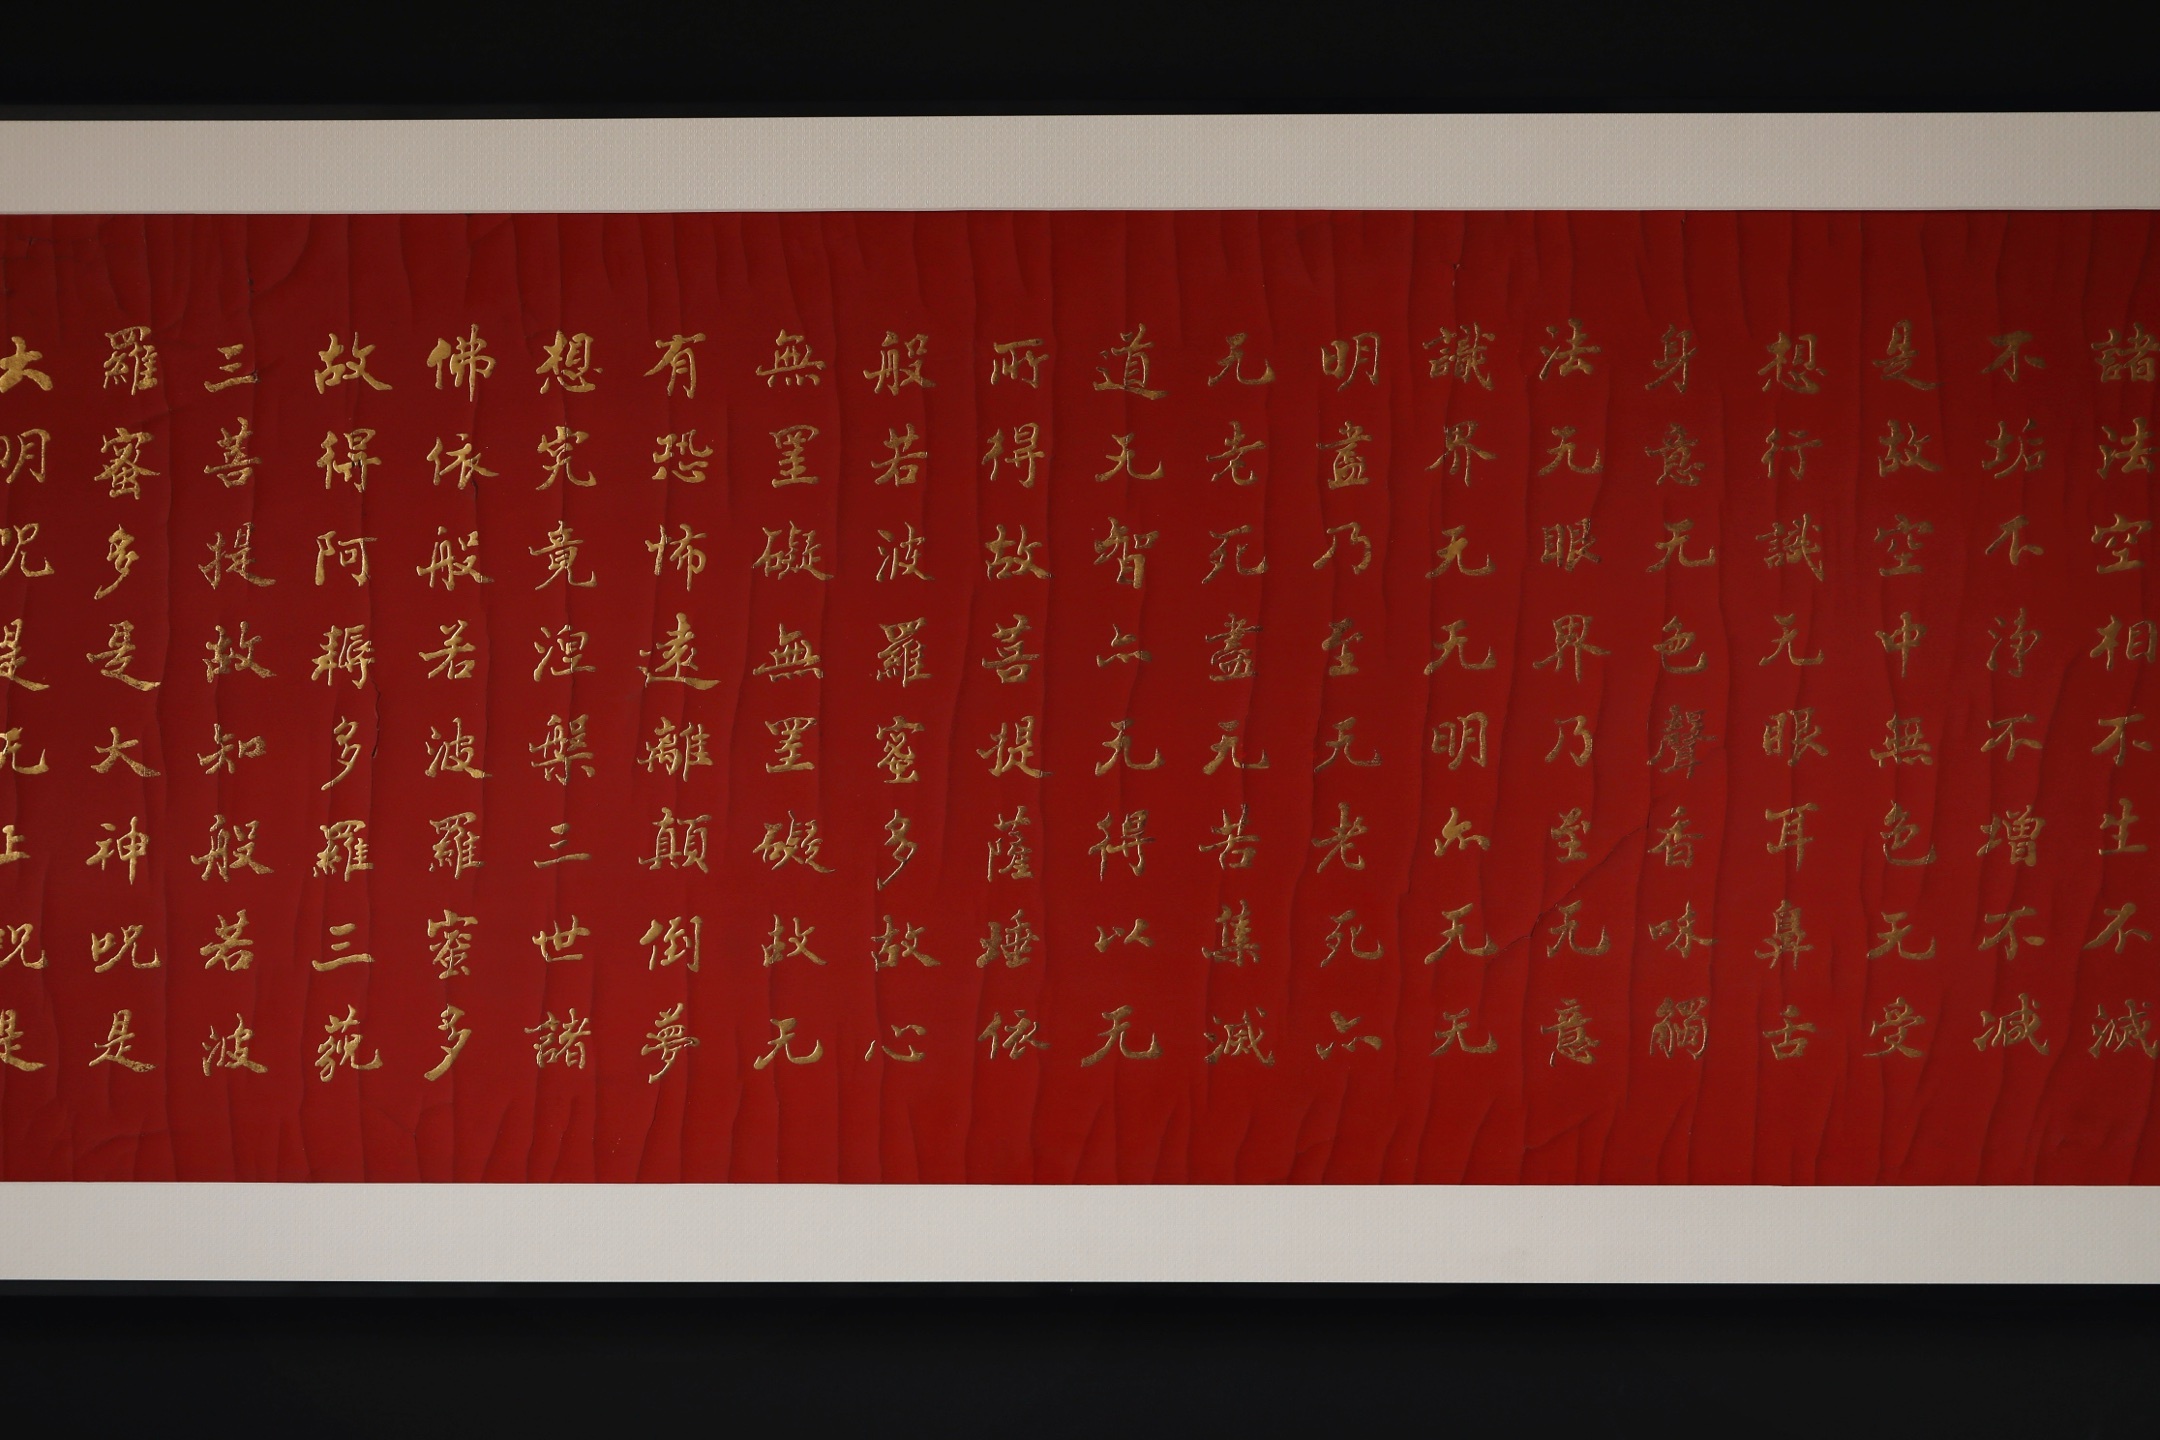 諸法空相不生不滅
不垢不淨不增不減
是故空中無色无受
想行識无眼耳鼻舌
身意无色聲香味觸
法无眼界乃至无意
識界无无明亦无无
明盡乃至无老死亦
无老死盡无苦集滅
道无智亦无得以无
所得故菩提薩埵依
般若波羅蜜多故心
無罣礙無罣礙故无
有恐怖遠離顛倒夢
想究竟涅槃三世諸
佛依般若波羅蜜多
故得阿耨多羅三藐
三菩提故知般若波
羅蜜多是大神咒是
大明咒是无上咒是